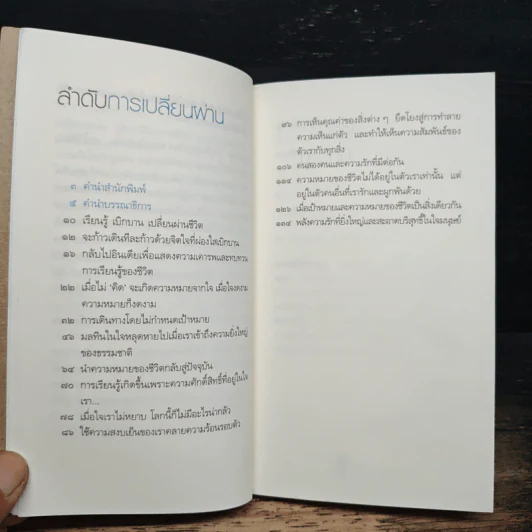 ลำดับการเปลี่ยนผ่าน
๓ คำนำสำนักพิมพ์
๕ คำนำบรรณาธิการ
๑๐ เรียนรู้ เบิกบาน เปลี่ยนผ่านชีวิต
๑๒ จะก้าวเดินทีละก้าวด้วยจิตใจที่ผ่องใสเบิกบาน
๑๖ กลับไปอินเดียเพื่อแสดงความเคารพและทบทวน
การเรียนรู้ของชีวิต
๒๒ เมื่อไม่ 'คิด' จะเกิดความหมายจากใจ เมื่อใจงดงาม
ความหมายก็งดงาม
๓๒ การเดินทางโดยไม่กำหนดเป้าหมาย
๔๖ มลทินในใจหลุดหายไปเมื่อเราเข้าถึงความยิ่งใหญ่
ของธรรมชาติ
๖๔ นำความหมายของชีวิตกลับสู่ปัจจุบัน
๗๐ การเรียนรู้เกิดขึ้นเพราะความศักดิ์สิทธิ์ที่อยู่ในใจ
เรา...
๗๘ เมื่อใจเราไม่หยาบ โลกนี้ก็ไม่มีอะไรน่ากลัว
๘๖ ใช้ความสงบเย็นของเราคลายความร้อนรอบตัว
๙๖ การเห็นคุณค่าของสิ่งต่าง ๆ ยึดโยงสู่การทำลาย
ความเห็นแก่ตัว และทำให้เห็นความสัมพันธ์ของ
ตัวเรากับทุกสิ่ง
๑๐๖ คนสองคนและความรักที่มีต่อกัน
๑๑๔ ความหมายของชีวิตไม่ได้อยู่ในตัวเราเท่านั้น แต่
อยู่ในตัวคนอื่นที่เรารักและผูกพันด้วย
๑๒๖ เมื่อเป้าหมายและความหมายของชีวิตเป็นสิ่งเดียวกัน
๑๓๔ พลังความรักที่ยิ่งใหญ่และสะอาดบริสุทธิ์ในใจมนุษย์